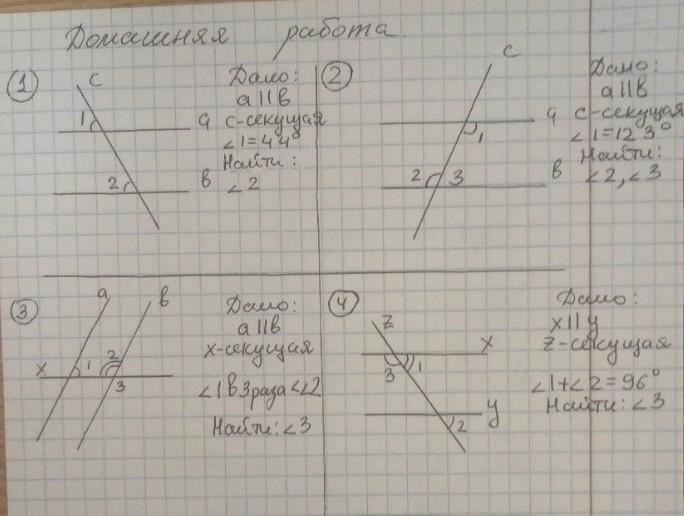 Домашняя работа.
1
c
1
a
2
в
Дано:
a||в
c-секущая
∠1=44°
Найти:
∠2
2
c
a
1
2 3
в
Дано:
a||в
c-секущая
∠1=123°
Найти:
∠2,∠3
3
a в
x
1 2
3
Дано:
a||в
x-секущая
∠1 в 3 раза <∠2
Найти:∠3
4
z
x
3 1
y
2
Дано:
x||y
z-секущая
∠1+∠2=96°
Найти:∠3